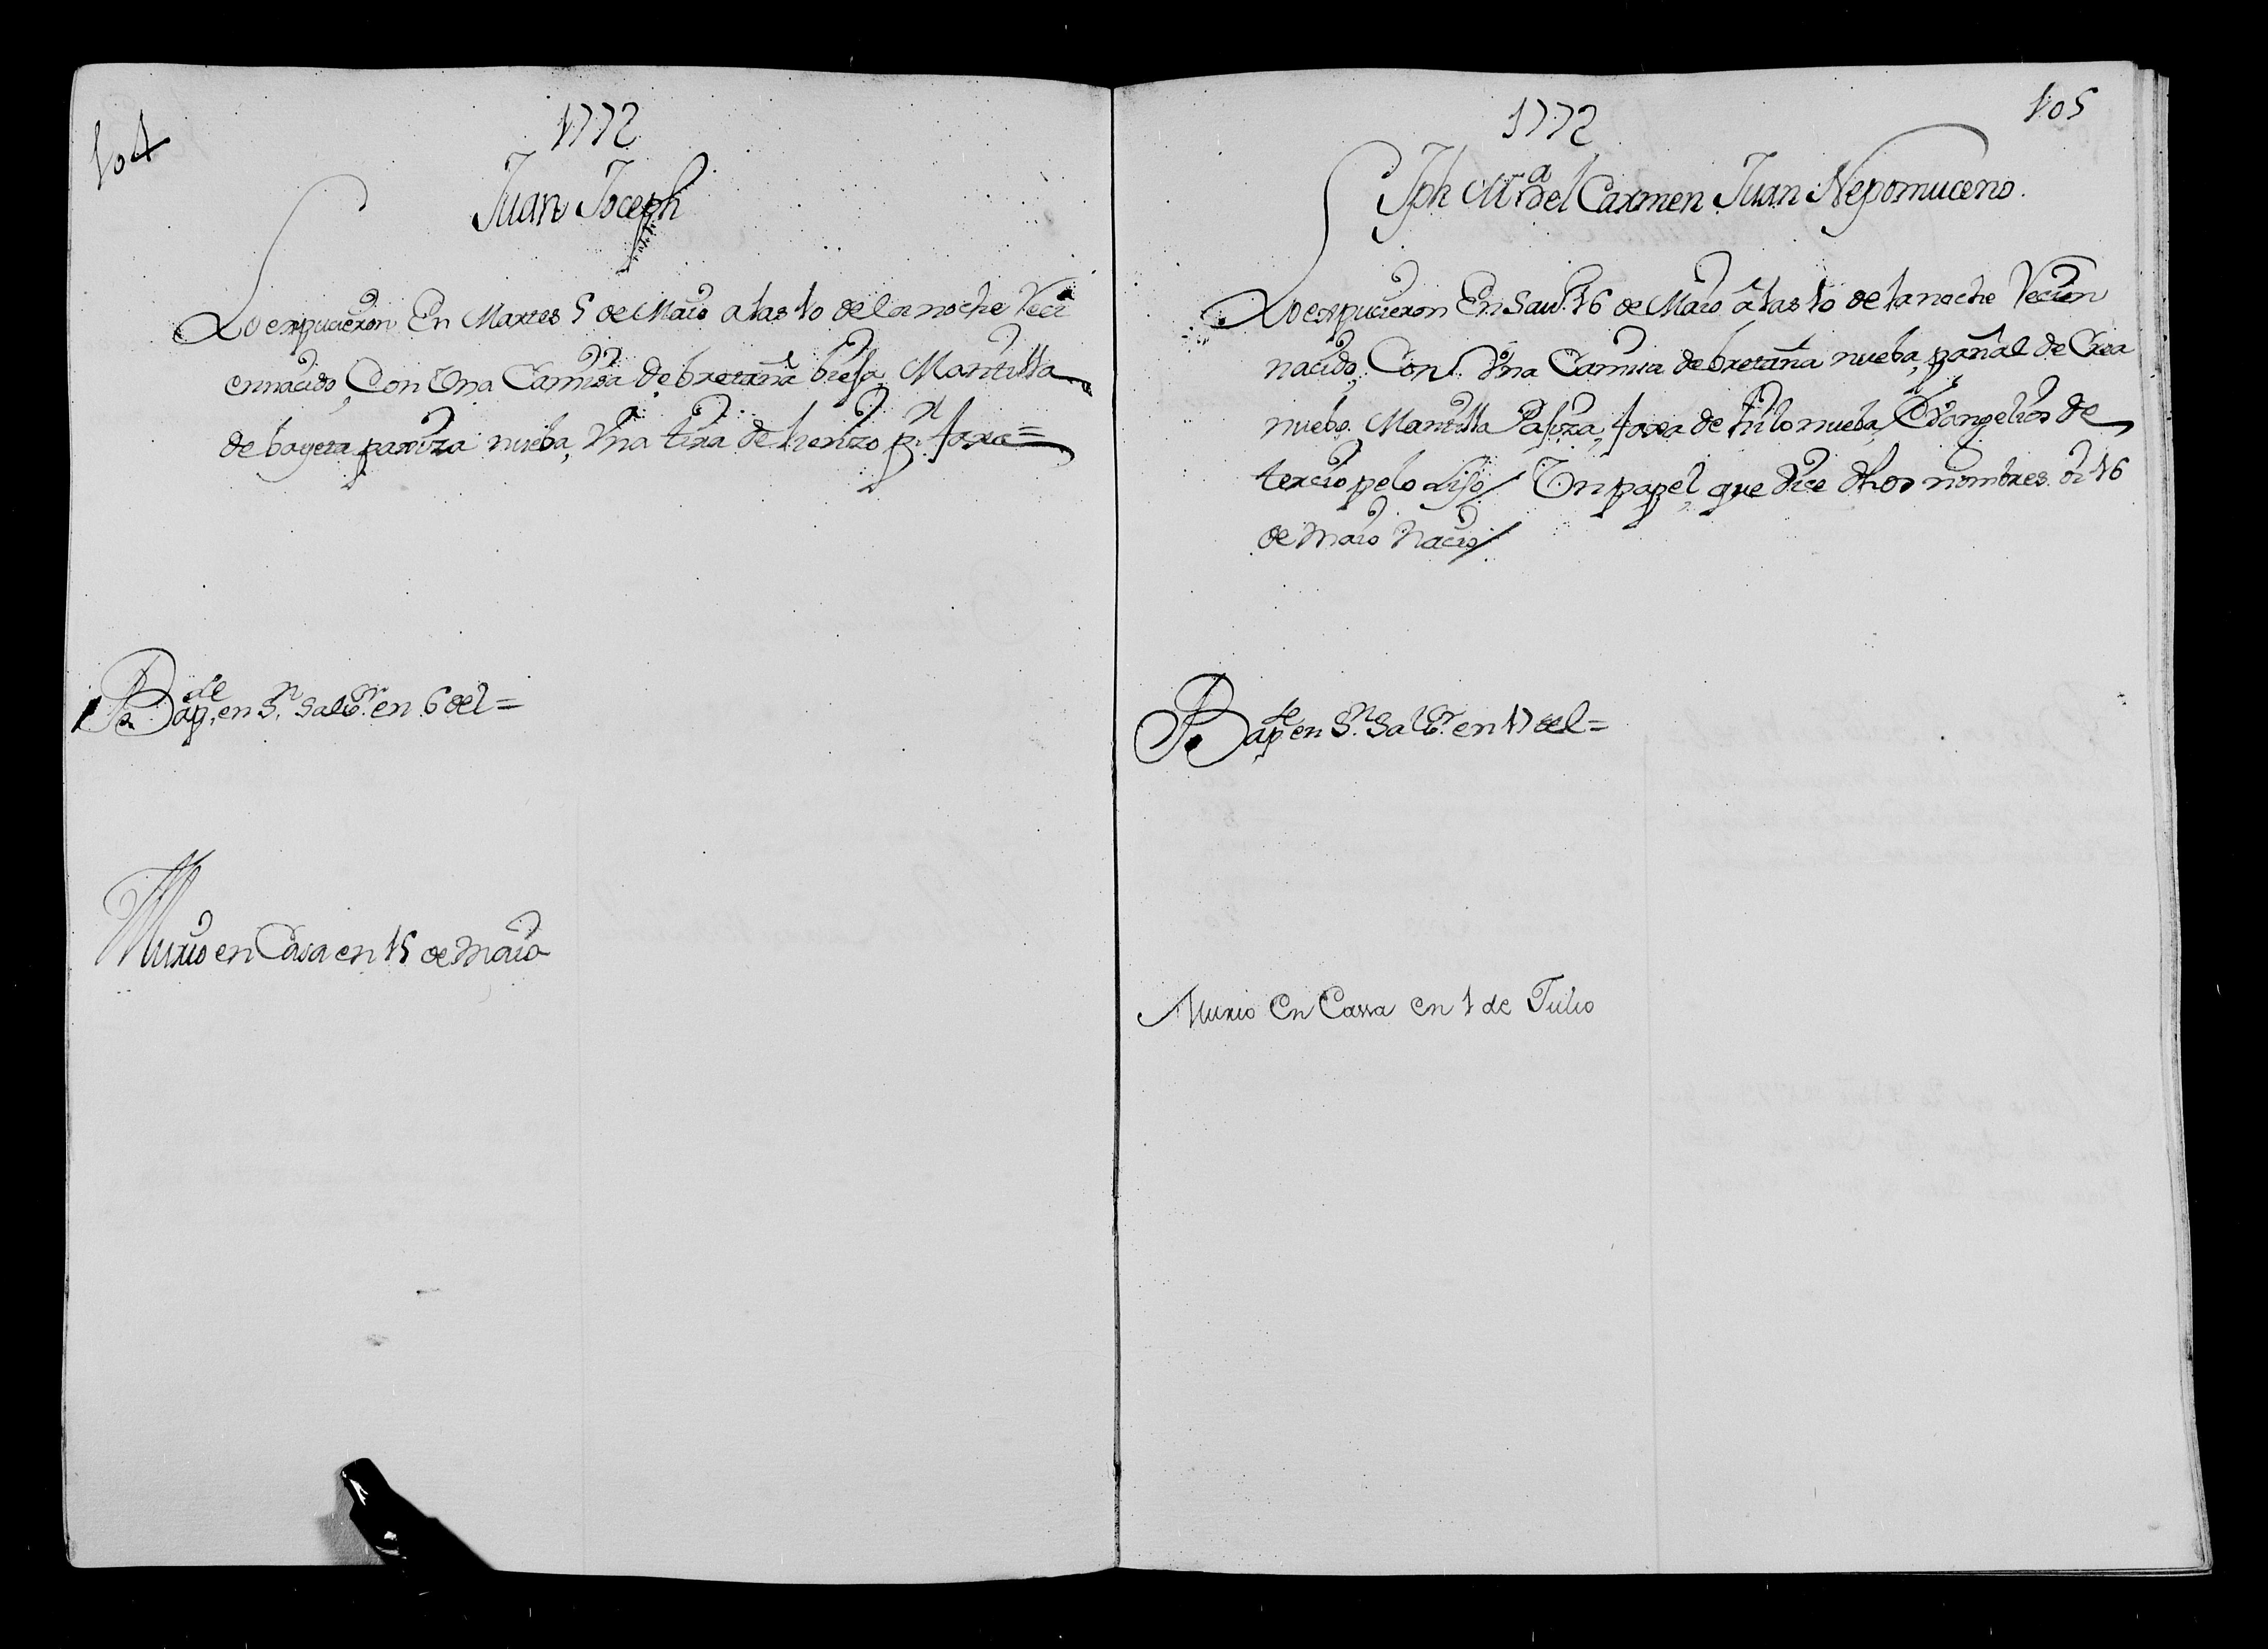 104
1772
Juan Joceph
Lo expucieron En Martes 5 de Maio a las 10 de la noche Reci
ennacido, Con Una Camisa de bretaña biefa, Mantilla
de bayeta pariza nueba, Vna tira de lienzo pr. faxa=
Bapde. en Sn. Salbr. en 6 del=
Murio en Casa en 15 de maio
1772
105
Jph Ma. del Carmen Juan Nepomuceno.
Lo expucieron En Saud. 16 de Maio â las 10 de la noche Recien
nacido, Con Vna Camisa de bretaña nueba, pañal de Crea
nuebo, Mantilla Pariza, faxa de hilo nueba, Evangelios de
terciopelo Liso/ Un papel, que dice dhos nombres. i 16
de maio Nacio/
Bapde. en Sn. Salbr. en 17 del=
Murio En Cassa en 1 de Julio